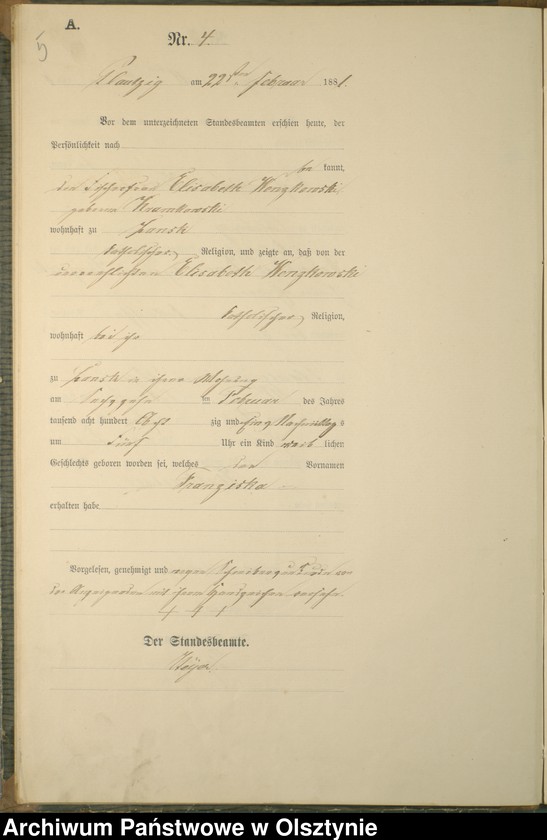 A.
5
Nr. 4.
Plautzig am 22ten Februar 1881.
Vor dem unterzeichneten Standesbeamten erschien heute, der
Persönlichkeit nach
be kannt,
die Ehefrau Elisabeth Wengkowski
geborne Kramkowski
wohnhaft zu Lansk
katholischer Religion, und zeigte an, daß von der
unverehelichten Elisabeth Wengkowski
katholischer Religion,
wohnhaft bei ihr
zu Lansk in ihrer Wohnung
am sechzehn ten Februar des Jahres
tausend acht hundert acht zig und eins Nachmittag s
um fünf Uhr ein Kind weib lichen
Geschlechts geboren worden sei, welches den Vornamen
Franziska
erhalten habe
Vorgelesen, genehmigt und wegen Schreibensunkunde von
der Anzeigenden mit ihrem Handzeichen versehen.
+ + +
Der Standesbeamte.
Archiwum Państwowe w Olsztynie